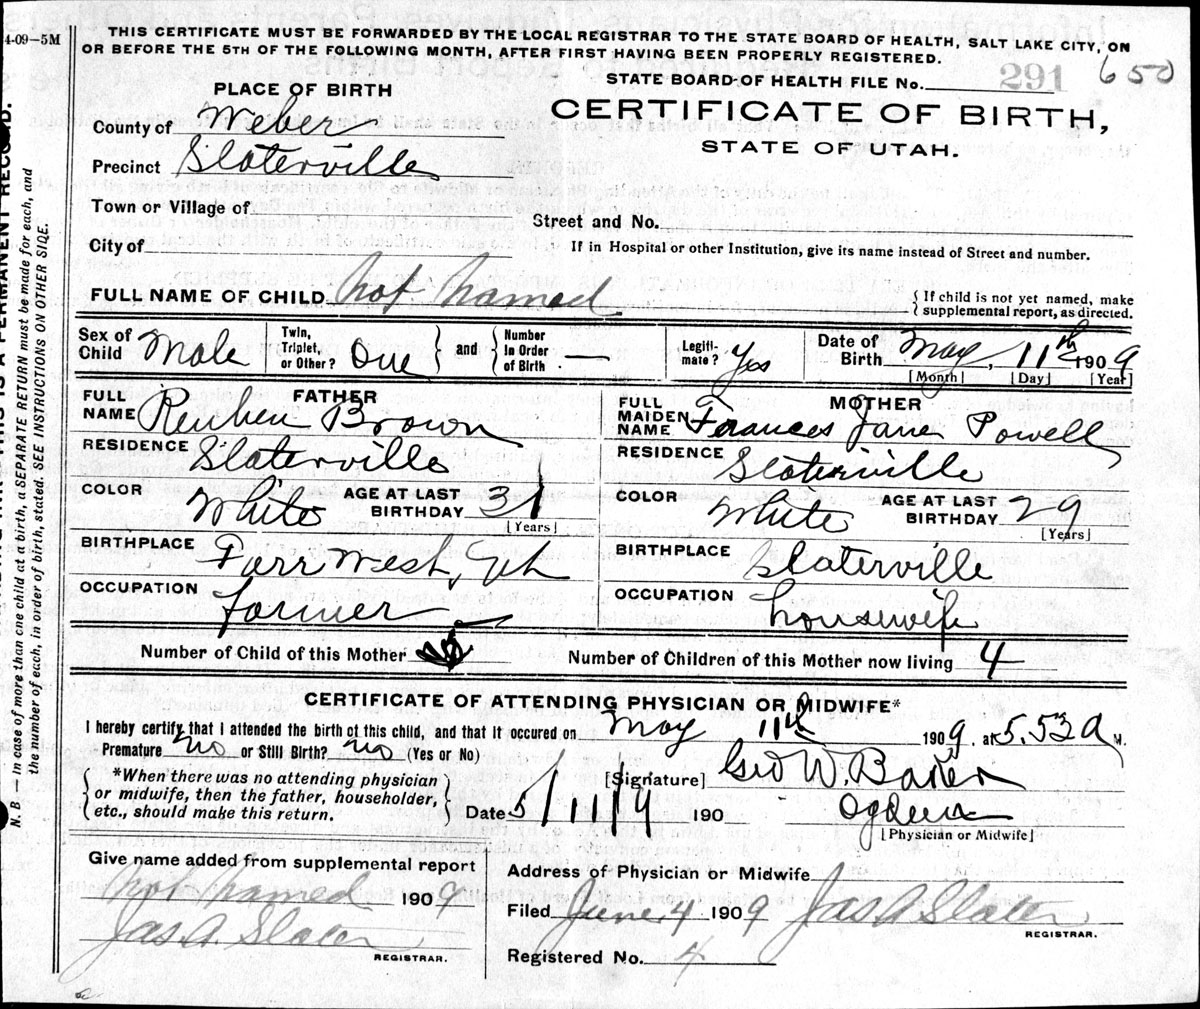 4-09—5M
THIS CERTIFICATE MUST BE FORWARDED BY THE LOCAL REGISTRAR TO THE STATE BOARD OF HEALTH, SALT LAKE CITY, ON
OR BEFORE THE 5TH OF THE FOLLOWING MONTH, AFTER FIRST HAVING BEEN PROPERLY REGISTERED.
STATE BOARD OF HEALTH FILE No. 291 650
PLACE OF BIRTH
CERTIFICATE OF BIRTH,
STATE OF UTAH.
County of Weber
Precinct Slaterville
Town or Village of
Street and No.
City of
If in Hospital or other Institution, give its name instead of Street and number.
FULL NAME OF CHILD not named
{ If child is not yet named, make
supplemental report, as directed.
Sex of Child Male
Twin, Triplet, or Other? One } and { Number In Order of Birth —
Legiti-mate? Yes
Date of Birth May, 11th 1909
[Month] [Day] [Year]
FATHER
FULL NAME Reuben Brown
RESIDENCE Slaterville
COLOR White AGE AT LAST BIRTHDAY 31
[Years]
BIRTHPLACE Farr West, Uh
OCCUPATION farmer
MOTHER
FULL MAIDEN NAME Frances Jane Powell
RESIDENCE Slaterville
COLOR White AGE AT LAST BIRTHDAY 29
[Years]
BIRTHPLACE Slaterville
OCCUPATION housewife
Number of Child of this Mother
Number of Children of this Mother now living 4
CERTIFICATE OF ATTENDING PHYSICIAN OR MIDWIFE*
I hereby certify that I attended the birth of this child, and that it occured on May 11th 1909, at 5.53 A M.
Premature no or Still Birth? no (Yes or No)
*When there was no attending physician
or midwife, then the father, householder,
etc., should make this return.
[Signature] Geo W. Baker
Date 5/11/9 190
Ogden
[Physician or Midwife]
Give name added from supplemental report
not named 1909
Jas. A. Slater
REGISTRAR.
Address of Physician or Midwife
Filed June 4 1909 Jas A Slater
REGISTRAR.
Registered No. 4
N. B.—In case of more than one child at a birth, a SEPARATE RETURN must be made for each, and
the number of each, in order of birth, stated. SEE INSTRUCTIONS ON OTHER SIDE.
THIS IS A PERMANENT RECORD.